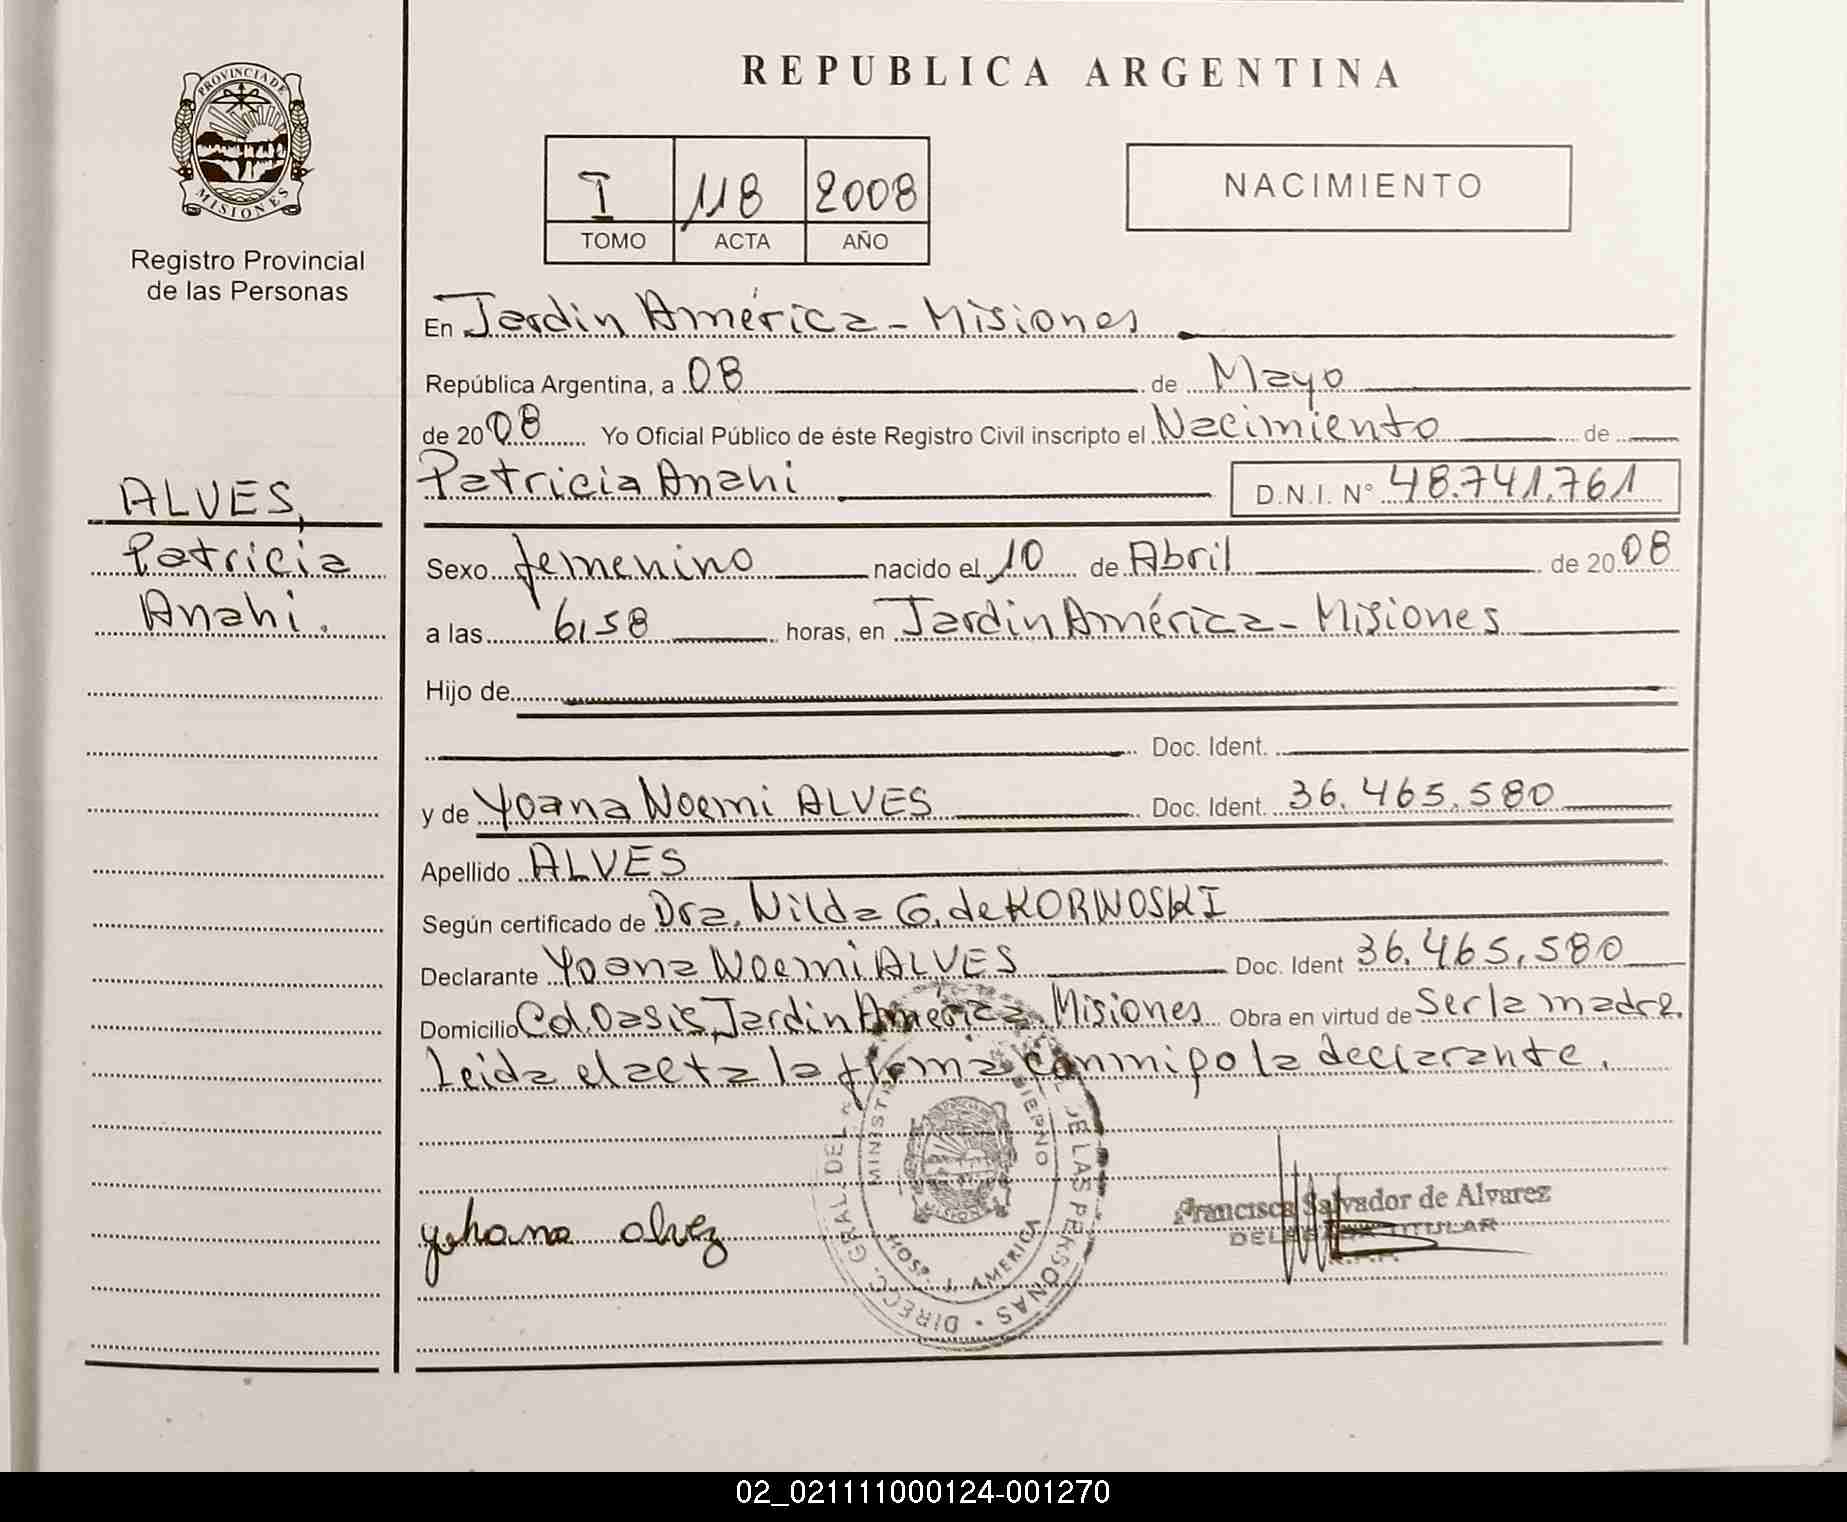 PROVINCIA DE
MISIONES
Registro Provincial
de las Personas
ALVES,
Patricia
Anahi.
REPUBLICA ARGENTINA
I 118 2008
TOMO ACTA AÑO
NACIMIENTO
En Jardin América - Misiones
República Argentina, a 08 de Mayo
de 2008 Yo Oficial Público de éste Registro Civil inscripto el Nacimiento de
Patricia Anahi D.N.I. N° 48.741.761
Sexo femenino nacido el 10 de Abril de 2008
a las 6,58 horas, en Jardin América - Misiones
Hijo de
Doc. Ident.
y de Yoana Noemi ALVES Doc. Ident. 36.465.580
Apellido ALVES
Según certificado de Dra. Nilda G. de KORNOSKI
Declarante Yoana Noemi ALVES Doc. Ident 36.465.580
Domicilio Col. Oasis, Jardin América Misiones Obra en virtud de Ser la madre.
Leida el acta la firma conmigo la declarante.
DIRECC. GRAL DEL DE LAS PERSONAS
HOSP. J. AMERICA
yohana alvez
Francisca Salvador de Alvarez
TITULAR
02_021111000124-001270